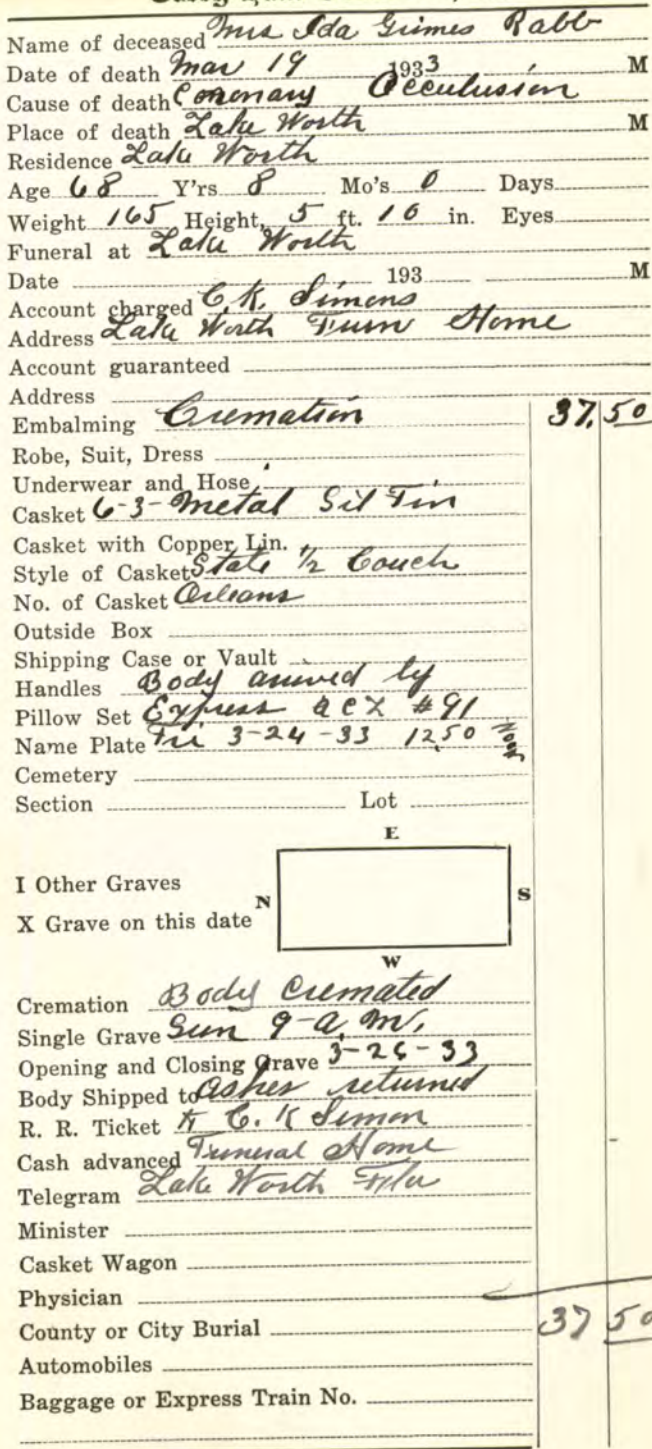 Name of deceased Mrs Ida Grimes Rabb
Date of death Mar 19 1933 M
Cause of death Coronary Occulusion
Place of death Lake Worth M
Residence Lake Worth
Age 68 Y'rs 8 Mo's 0 Days
Weight 165 Height, 5 ft. 10 in. Eyes
Funeral at Lake Worth
Date 193 M
Account charged C. K. Simons
Address Lake Worth Funn Home
Account guaranteed
Address
Embalming Cremation 37.50
Robe, Suit, Dress
Underwear and Hose
Casket 6-3-Metal Sil Tin
Casket with Copper Lin.
Style of Casket State 1/2 Couch
No. of Casket Orleans
Outside Box
Shipping Case or Vault
Handles Body arrived by
Pillow Set Express ACL #91
Name Plate Fri 3-24-33 12:50 Noon
Cemetery
Section Lot
E
I Other Graves
N S
X Grave on this date
W
Cremation Body Cremated
Single Grave Sun 9-a.m.
Opening and Closing Grave 3-26-33
Body Shipped to Ashes returned
R. R. Ticket to C. K Simon
Cash advanced Funeral Home
Telegram Lake Worth Fla
Minister
Casket Wagon
Physician
County or City Burial 37 50
Automobiles
Baggage or Express Train No.